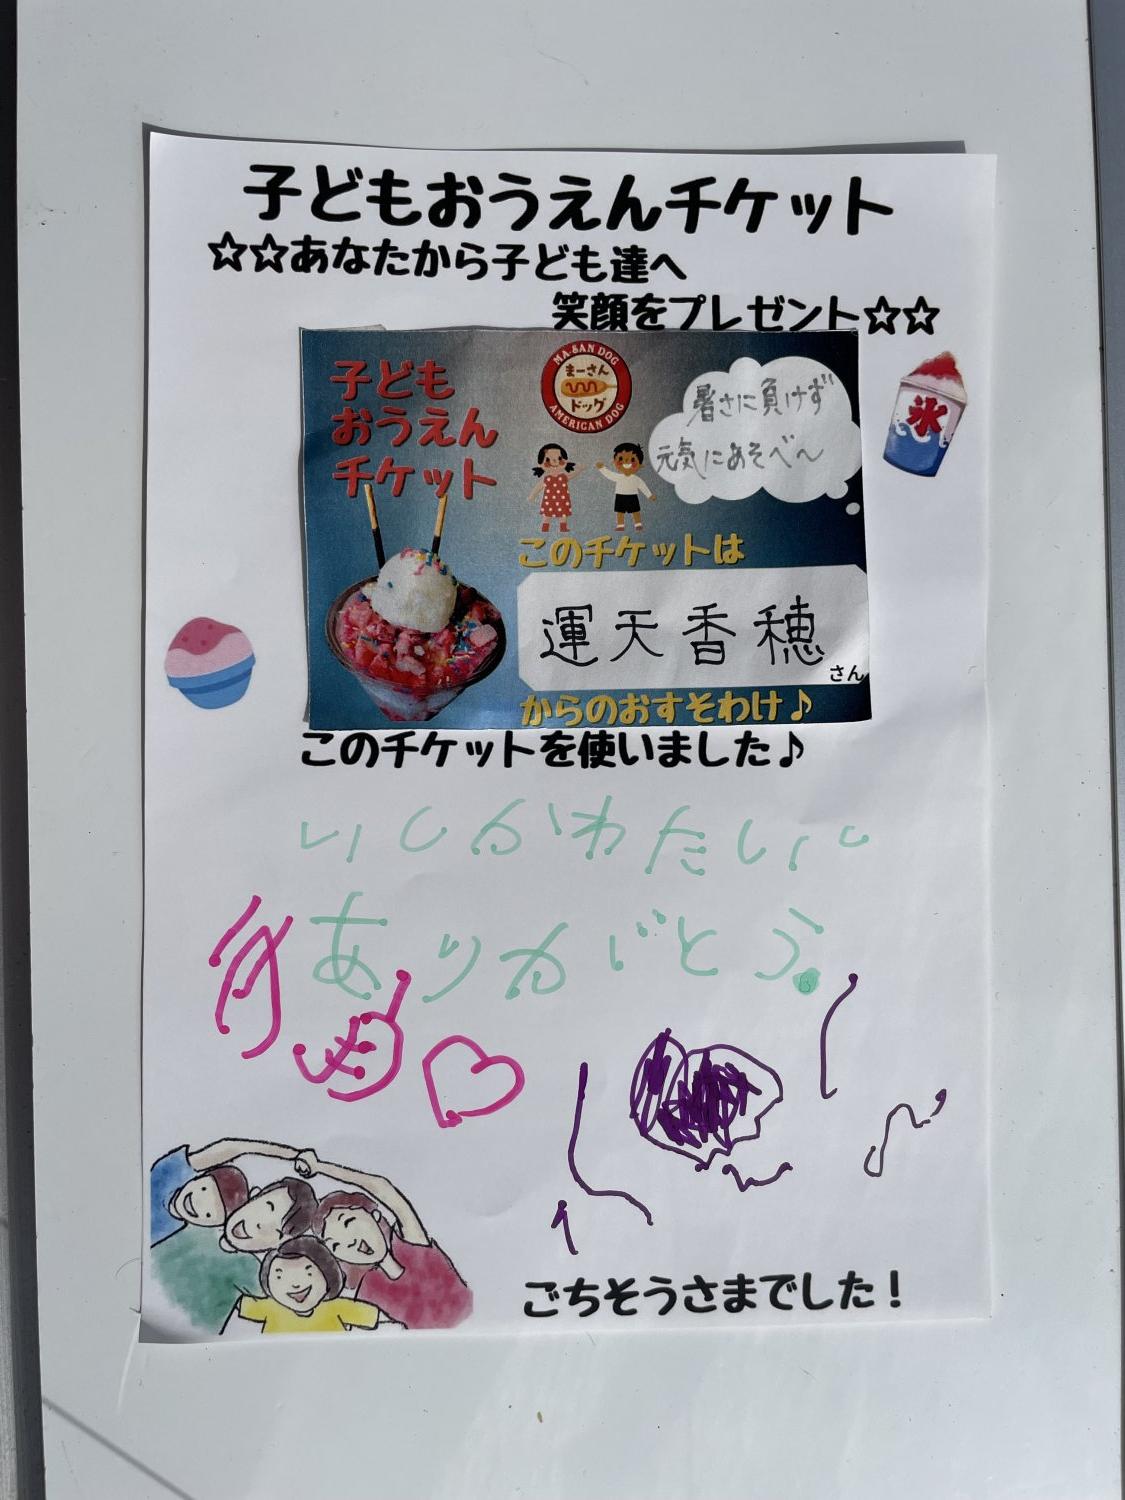 子どもおうえんチケット
☆☆あなたから子ども達へ
笑顔をプレゼント☆☆
子ども
おうえん
チケット
MA-SAN DOG
まーさん
ドッグ
AMERICAN DOG
暑さに負けず
元気にあそべ〜
氷
このチケットは
運天香穂
さん
からのおすそわけ♪
このチケットを使いました♪
いしかわたいし
ありがとう
ごちそうさまでした！